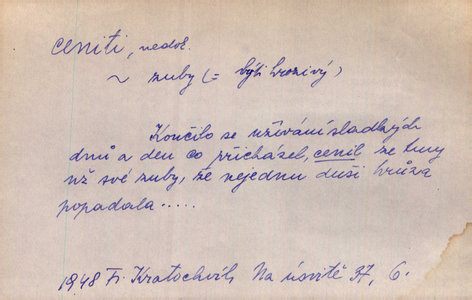 ceniti, nedok.
~ zuby (= býti hrozivý)
Končilo se užívání sladkých
dnů a den co přicházel, cenil ze tmy
už své zuby, že nejednu duši hrůza
popadala.....
1948 Fr. Kratochvíl, Na úsvitě 37, 6.